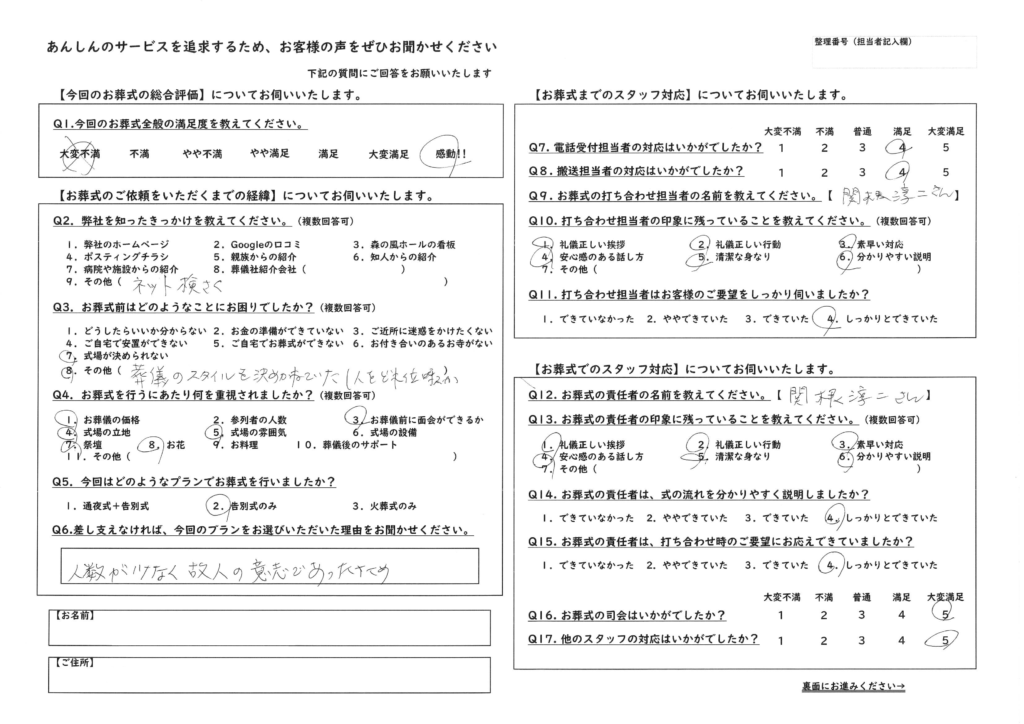 あんしんのサービスを追求するため、お客様の声をぜひお聞かせください
下記の質問にご回答をお願いいたします
【今回のお葬式の総合評価】についてお伺いいたします。
Q1.今回のお葬式全般の満足度を教えてください。
大変不満 不満 やや不満 やや満足 満足 大変満足 感動!!
【お葬式のご依頼をいただくまでの経緯】についてお伺いいたします。
Q2. 弊社を知ったきっかけを教えてください。(複数回答可)
1. 弊社のホームページ 2. Googleの口コミ 3. 森の風ホールの看板
4. ポスティングチラシ 5. 親族からの紹介 6. 知人からの紹介
7. 病院や施設からの紹介 8. 葬儀社紹介会社( )
9. その他( ネット検さく )
Q3. お葬式前はどのようなことにお困りでしたか?(複数回答可)
1. どうしたらいいか分からない 2. お金の準備ができていない 3. ご近所に迷惑をかけたくない
4. ご自宅で安置ができない 5. ご自宅でお葬式ができない 6. お付き合いのあるお寺がない
7. 式場が決められない
8. その他( 葬儀のスタイルを決めかねていた(人をど
Q4. お葬式を行うにあたり何を重視されましたか?(複数回答可)
1. お葬儀の価格 2. 参列者の人数 3. お葬儀前に面会ができるか
4. 式場の立地 5. 式場の雰囲気 6. 式場の設備
7. 祭壇 8. お花 9. お料理 10. 葬儀後のサポート
11. その他( )
Q5. 今回はどのようなプランでお葬式を行いましたか?
1. 通夜式+告別式 2. 告別式のみ 3. 火葬式のみ
Q6.差し支えなければ、今回のプランをお選びいただいた理由をお聞かせください。
人数が少なく故人の意志であったため
【お名前】
【ご住所】
整理番号(担当者記入欄)
【お葬式までのスタッフ対応】についてお伺いいたします。
大変不満 不満 普通 満足 大変満足
Q7. 電話受付担当者の対応はいかがでしたか? 1 2 3 4 5
Q8. 搬送担当者の対応はいかがでしたか? 1 2 3 4 5
Q9. お葬式の打ち合わせ担当者の名前を教えてください。【 関根淳二さん 】
Q10. 打ち合わせ担当者の印象に残っていることを教えてください。(複数回答可)
1. 礼儀正しい挨拶 2. 礼儀正しい行動 3. 素早い対応
4. 安心感のある話し方 5. 清潔な身なり 6. 分かりやすい説明
7. その他( )
Q11. 打ち合わせ担当者はお客様のご要望をしっかり伺いましたか?
1. できていなかった 2. ややできていた 3. できていた 4. しっかりとできていた
【お葬式でのスタッフ対応】についてお伺いいたします。
Q12. お葬式の責任者の名前を教えてください。【 関根淳二さん 】
Q13. お葬式の責任者の印象に残っていることを教えてください。(複数回答可)
1. 礼儀正しい挨拶 2. 礼儀正しい行動 3. 素早い対応
4. 安心感のある話し方 5. 清潔な身なり 6. 分かりやすい説明
7. その他( )
Q14. お葬式の責任者は、式の流れを分かりやすく説明しましたか?
1. できていなかった 2. ややできていた 3. できていた 4. しっかりとできていた
Q15. お葬式の責任者は、打ち合わせ時のご要望にお応えできていましたか?
1. できていなかった 2. ややできていた 3. できていた 4. しっかりとできていた
大変不満 不満 普通 満足 大変満足
Q16. お葬式の司会はいかがでしたか? 1 2 3 4 5
Q17. 他のスタッフの対応はいかがでしたか? 1 2 3 4 5
裏面にお進みください→